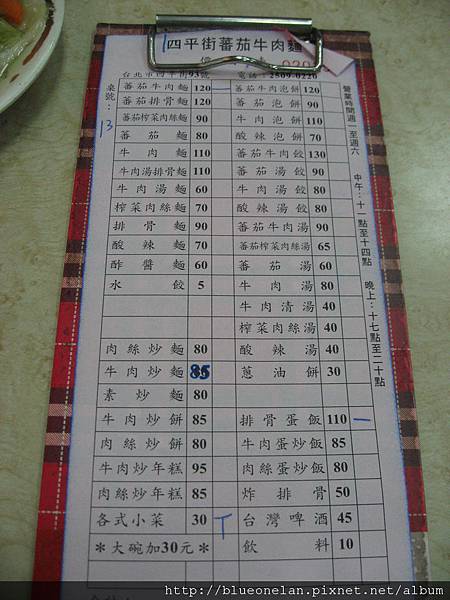 四平街蕃茄牛肉麵
台北市四平街93號 電話：2509-0220
桌號：13
蕃茄牛肉麵 120 蕃茄牛肉泡餅 120
蕃茄排骨麵 110 蕃茄泡餅 90
蕃茄榨菜肉絲麵 90 牛肉泡餅 110
蕃茄麵 80 酸辣泡餅 70
牛肉麵 110 蕃茄牛肉餃 130
牛肉湯排骨麵 110 蕃茄湯餃 90
牛肉湯麵 60 牛肉湯餃 80
榨菜肉絲麵 70 酸辣湯餃 80
排骨麵 90 蕃茄牛肉湯 90
酸辣麵 70 蕃茄榨菜肉絲湯 65
酢醬麵 60 蕃茄湯 60
水餃 5 牛肉湯 80
牛肉清湯 40
榨菜肉絲湯 40
肉絲炒麵 80 酸辣湯 40
牛肉炒麵 85 蔥油餅 30
素炒麵 80
牛肉炒餅 85 排骨蛋飯 110 一
肉絲炒餅 80 牛肉蛋炒飯 85
牛肉炒年糕 95 肉絲蛋炒飯 80
肉絲炒年糕 85 炸排骨 50
各式小菜 30 台灣啤酒 45
＊大碗加30元＊ 飲料 10
營業時間週一至週六 中午：十一點至十四點 晚上：十七點至二十點
http://blueonelan.pixnet.net/album